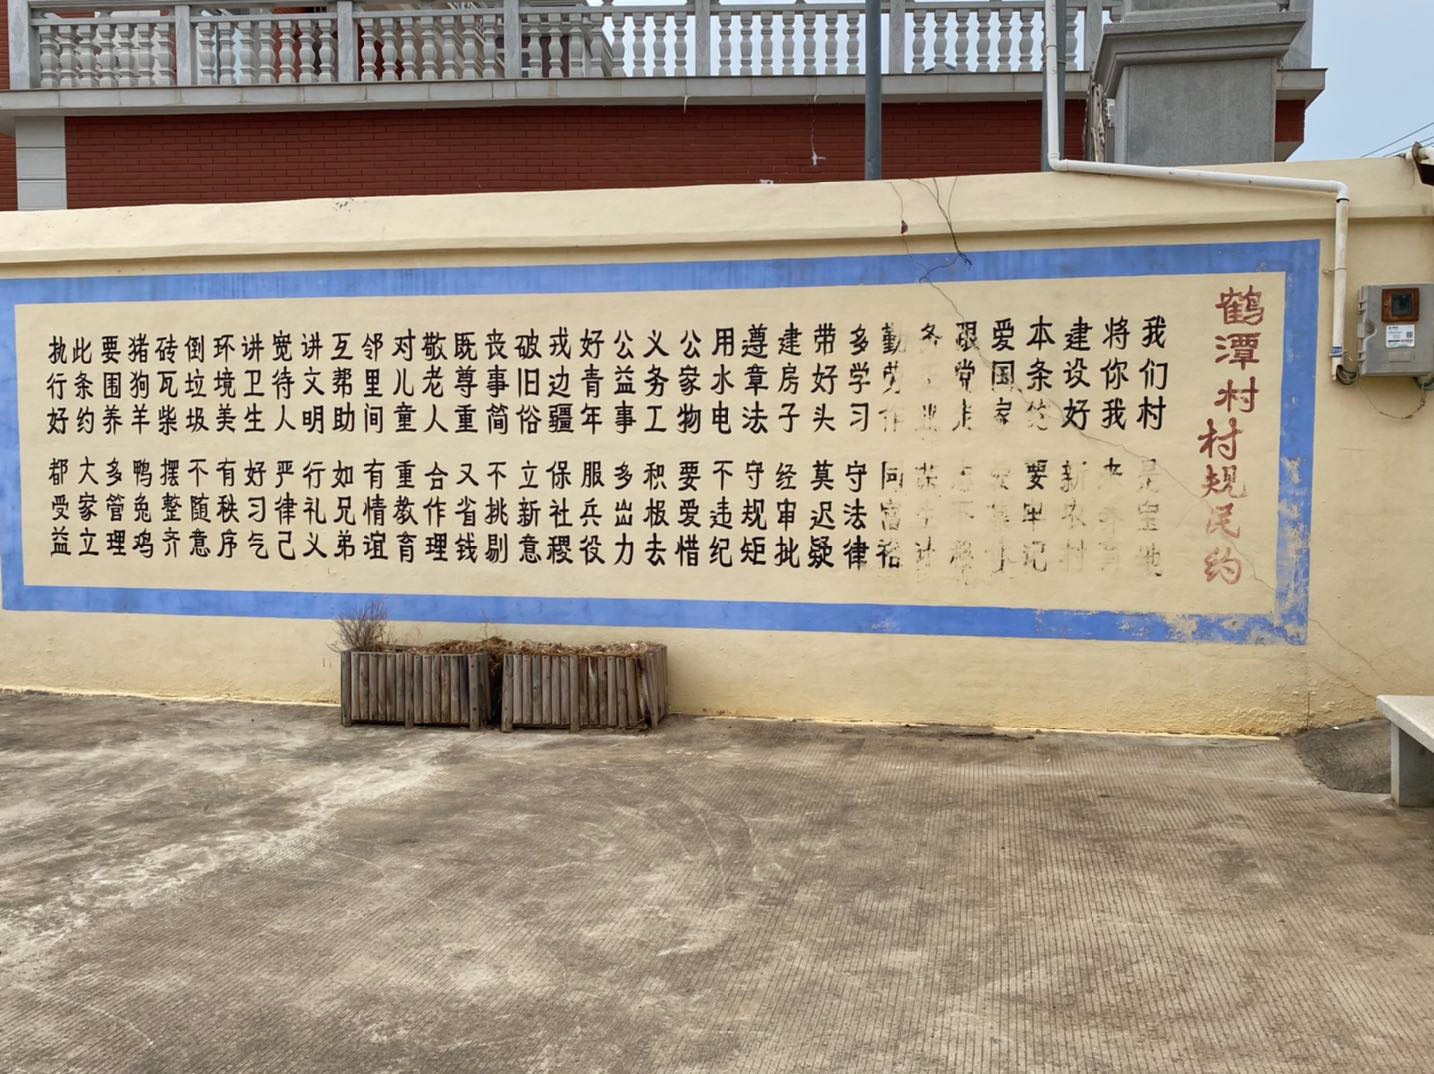 鹤潭村村规民约
我们村 是宝地
将你我 来
建设好 新农村
本条约 要牢记
爱国家 集体
跟党走 志不移
务业
勤劳作 同富裕
多学习 守法律
带好头 莫迟疑
建房子 经审批
遵章法 守规矩
用水电 不违纪
公家物 要爱惜
义务工 积极去
公益事 多出力
好青年 服兵役
戎边疆 保社稷
破旧俗 立新意
丧事简 不挑剔
既尊重 又省钱
敬老人 合作理
对儿童 重教育
邻里间 有情谊
互帮助 如兄弟
讲文明 行礼义
宽待人 严律己
讲卫生 好习气
环境美 有秩序
倒垃圾 不随意
砖瓦柴 摆整齐
猪狗羊 鸭兔鸡
要围养 多管理
此条约 大家立
执行好 都受益